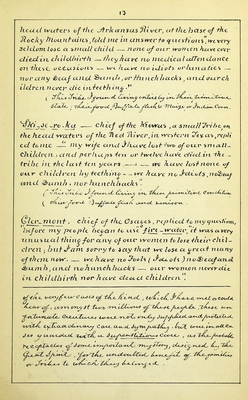 13
head waters of the Arkansas River, at the base of the
Rocky Mountains, told me in answer to questions, "we very
seldom lose a small child — none of our women have ever
died in childbirth — they have no medical attendance
on these occasions — we have no idiots or lunatics —
nor any Deaf and Dumb, or Hunchbacks, and our ch
ildren never die in teething."
This Tribe I found living entirely in their primitive
state; their food, Buffalo flesh & Maize or Indian Corn.
Ski-se-ro-ka — chief of the Kiowas, a small Tribe, on
the head waters of the Red River, in western Texas, repli
ed to me — "my wife and I have lost two of our small
children, and perhaps ten or twelve have died in the
tribe in the last ten years — we have lost none of
our children by teething — we have no Idiots, no Deaf
and Dumb, nor hunchbacks."
This Tribe I found living in their primitive condition
their food Buffalo flesh and venison.
Cler mont, chief of the Osages, replied to my question,
"before my people began to use fire water, it was a very
unusual thing for any of our women to lose their chil-
dren; but I am sorry to say that we lose a great many
of them now — we have no Fools (Idiots) no Deaf and
Dumb, and no hunchbacks — our women never die
in childbirth nor have dead children."
of the very few cases of the kind, which I have met or could
hear of, amongst two millions of these people, these un
fortunate creatures were not only supplied and protected
with extraordinary care and sympathy, but were in all ca-
ses guarded with a superstitious care, as the probable
receptacles of some important mystery, designed by the
Great Spirit, for the undoubted benefit of the families
or Tribes to which they belonged.